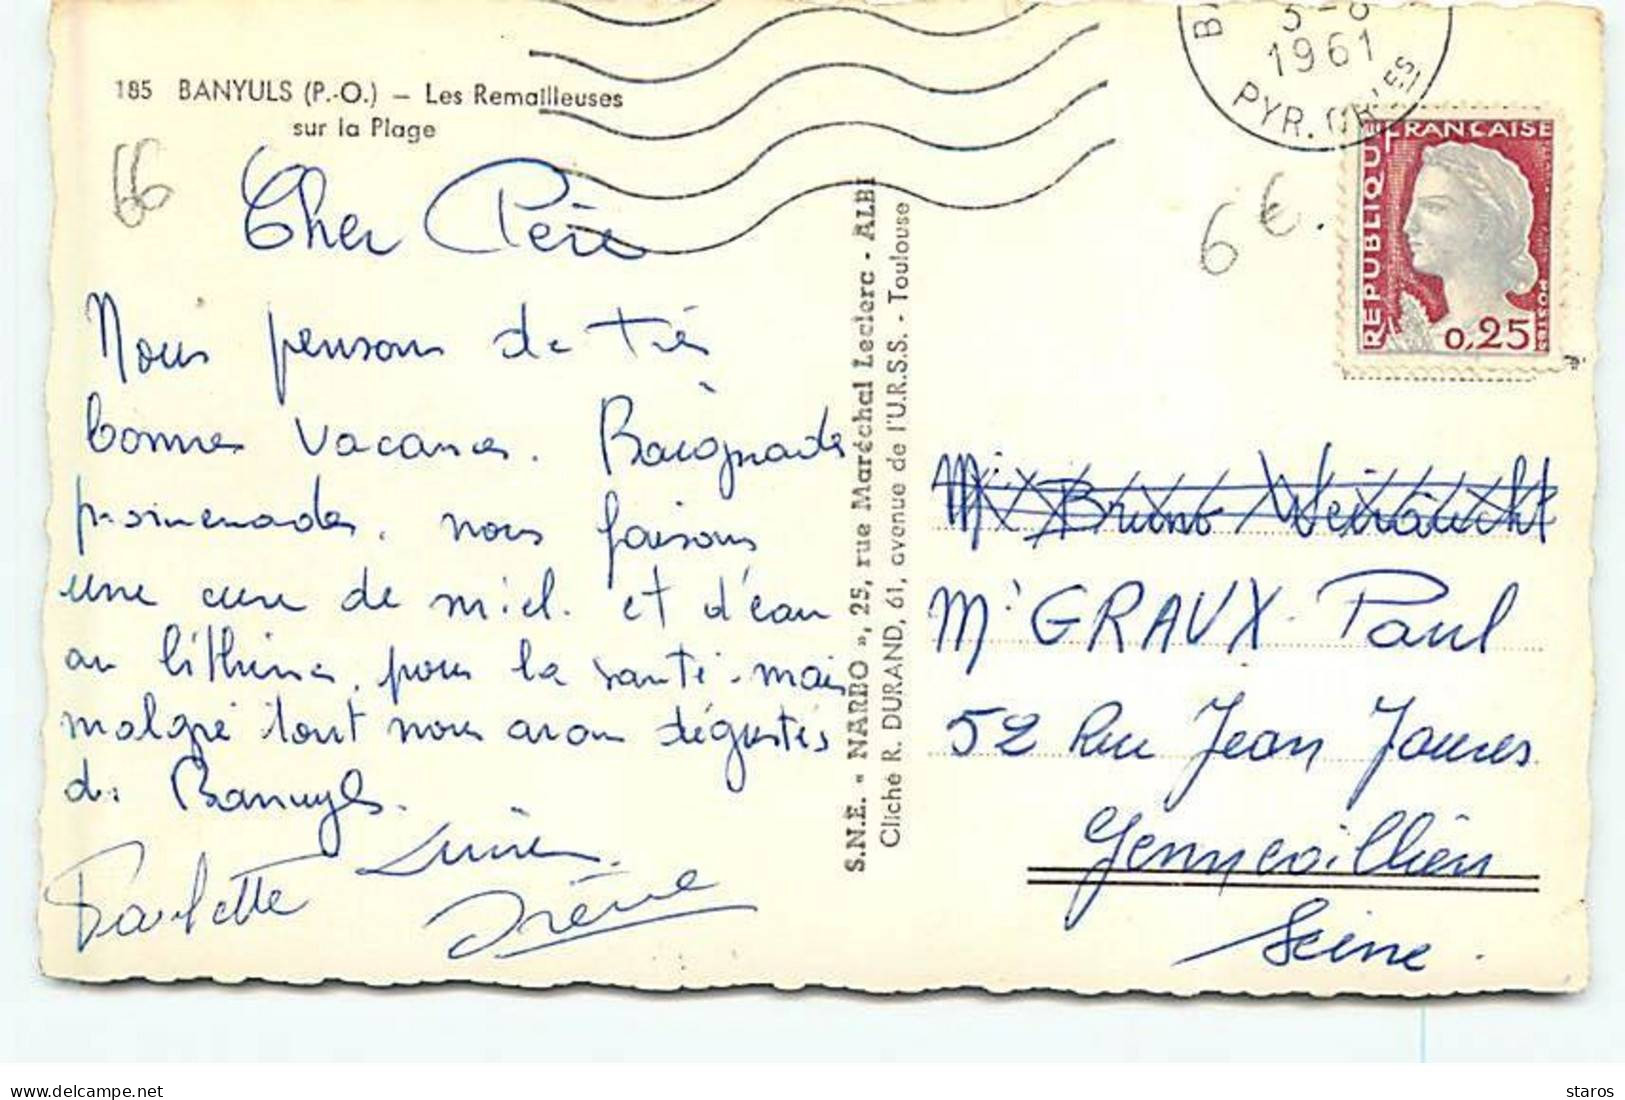 185 BANYULS (P.-O.) — Les Remailleuses
sur la Plage
66
Cher Père
Nous pensons de très
bonnes vacances. Baignades
promenades. nous faisons
une cure de miel. et d'eau
au lithiné, pour la santé. mais
malgré tout nous avons dégustés
du Banuyls.
Lucien.
Paulette
Irène
S.N.E. « NARBO », 25, rue Maréchal Leclerc - ALBI
Cliché R. DURAND, 61, avenue de l'U.R.S.S. - Toulouse
1961
PYR. OR'LES
6 €.
REPUBLIQUE FRANCAISE
0,25
Mr Bruno
Mr GRAUX Paul
52 Rue Jean Jaures
Gennevilliers
Seine.
staros
delcampe.net